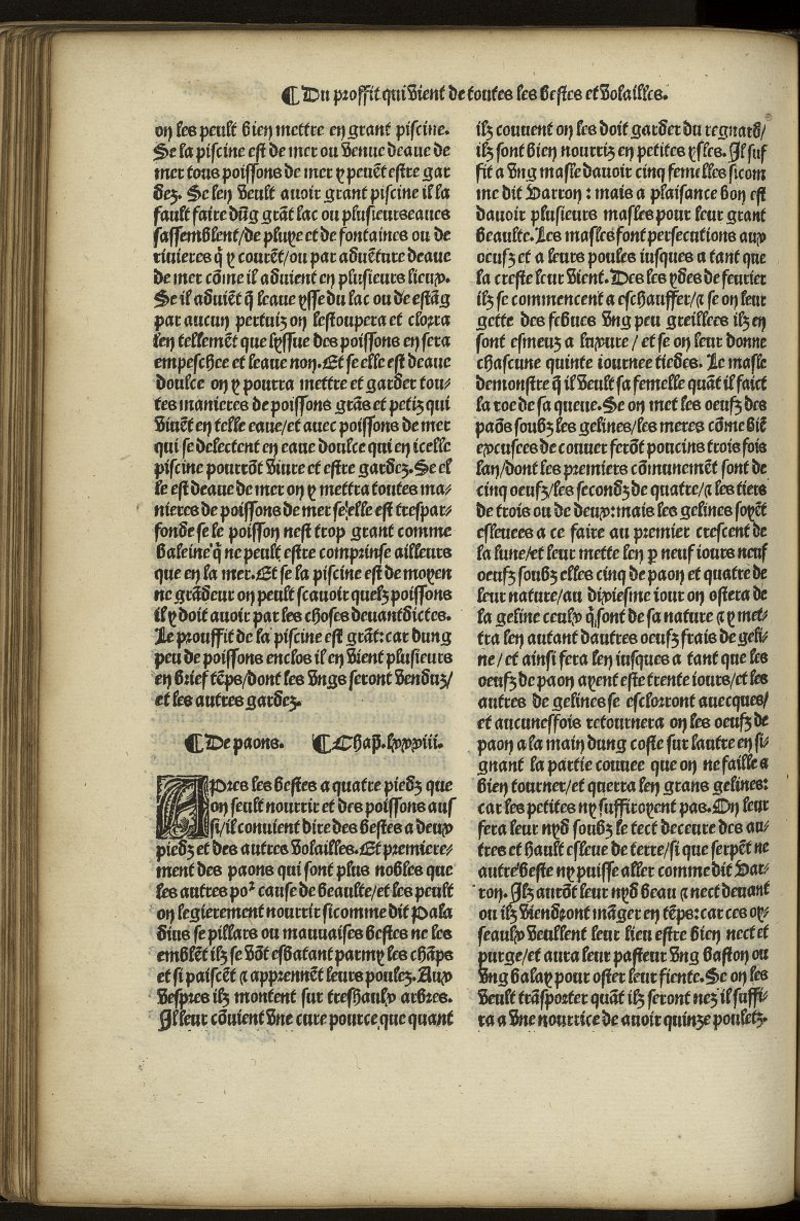 ¶Du proffit qui vient de toutes les bestes et volailles.
on les peult bien mettre en grant piscine.
Se la piscine est de mer ou venue deaue de
mer tous poissons de mer y peuẽt estre gar
dez. Se len veult auoir grant piscine il la
fault faire dũg grãt lac ou plusieurs eaues
sassemblent/de pluye et de fontaines ou de
riuieres q̃ y courẽt/ou par aduẽture deaue
de mer cõme il aduient en plusieurs lieux.
Se il aduiẽt q̃ leaue ysse du lac ou de estãg
par aucun pertuiz on lestoupera et clorra
len tellemẽt que lyssue des poissons en sera
empeschee et leaue non. Et se elle est deaue
doulce on y pourra mettre et garder tou-
tes manieres de poissons grãs et petiz qui
viuẽt en telle eaue/et auec poissons de mer
qui se delectent en eaue doulce qui en icelle
piscine pourrõt viure et estre gardez. Se el
le est deaue de mer on y mettra toutes ma-
nieres de poissons de mer se elle est trespar-
fonde se le poisson nest trop grant comme
baleine q̃ ne peult estre comprinse ailleurs
que en la mer. Et se la piscine est de moyen
ne grãdeur on peult scauoir quelz poissons
il y doit auoir par les choses deuant dictes.
Le prouffit de la piscine est grãt: car dung
peu de poissons enclos il en vient plusieurs
en brief tẽps/dont les vngs seront venduz/
et les autres gardez.
¶De paons. ¶Chap̃. lxxxiii.
APres les bestes a quatre piedz que
on seult nourrir et des poissons aus
si/il conuient dire des bestes a deux
piedz et des autres volailles. Et premiere-
ment des paons qui sont plus nobles que
les autres po² cause de beaulte/et les peult
on legierement nourrir sicomme dit Pala
dius se pillars ou mauuaises bestes ne les
emblẽt ilz se võt esbatant parmy les chãps
et si paiscẽt ⁊ apprennẽt leurs poulez. Aux
vespres ilz montent sur treshaulx arbres.
Il leur cõuient vne cure pource que quant
ilz couuent on les doit garder du regnard/
ilz sont bien nourriz en petites ysles. Il suf
fit a vng masle dauoir cinq femelles sicom
me dit Varron: mais a plaisance bon est
dauoir plusieurs masles pour leur grant
beaulte. Les masles font persecutions aux
oeufz et a leurs poules iusques a tant que
la creste leur vient. Des les ydes de feurier
ilz se commencent a eschauffer/⁊ se on leur
gette des febues vng peu greillees ilz en
sont esmeuz a luxure/et se on leur donne
chascune quinte iournee tiedes. Le masle
demonstre q̃ il veult sa femelle quãt il faict
la roe de sa queue. Se on met les oeufz des
paõs soubz les gelines/les meres cõme biẽ
excusees de couuer ferõt poucins trois fois
lan/dont les premiers cõmunemẽt sont de
cinq oeufz/les secondz de quatre/⁊ les tiers
de trois ou de deux: mais les gelines soyẽt
esleuees a ce faire au premier crescent de
la lune/et leur mette len p̱ neuf iours neuf
oeufz soubz elles cinq de paon et quatre de
leur nature/au dixiesme iour on ostera de
la geline ceulx q̃ sont de sa nature ⁊ y met-
tra len autant dautres oeufz frais de geli-
ne/et ainsi fera len iusques a tant que les
oeufz de paon ayent este trente iours/et les
autres de gelines se esclorront auecques/
et aucunesfois retournera on les oeufz de
paon a la main dung coste sur lautre en si-
gnant la partie couuee que on ne faille a
bien tourner/et querra len grans gelines:
car les petites ny suffiroyent pas. On leur
fera leur nyd soubz le tect deceure des au-
tres et hault esleue de terre/si que serpẽt ne
autre beste ny puisse aller comme dit Var-
ron. Ilz aurõt leur nyd beau ⁊ nect deuant
ou ilz viendront mãger en tẽps: car ces oy-
seaulx veullent leur lieu estre bien nect et
purge/et aura leur pasteur vng baston ou
vng balay pour oster leur fiente. Se on les
veult trãsporter quãt ilz seront nez il suffi-
ra a vne nourrice de auoir quinze pouletz.